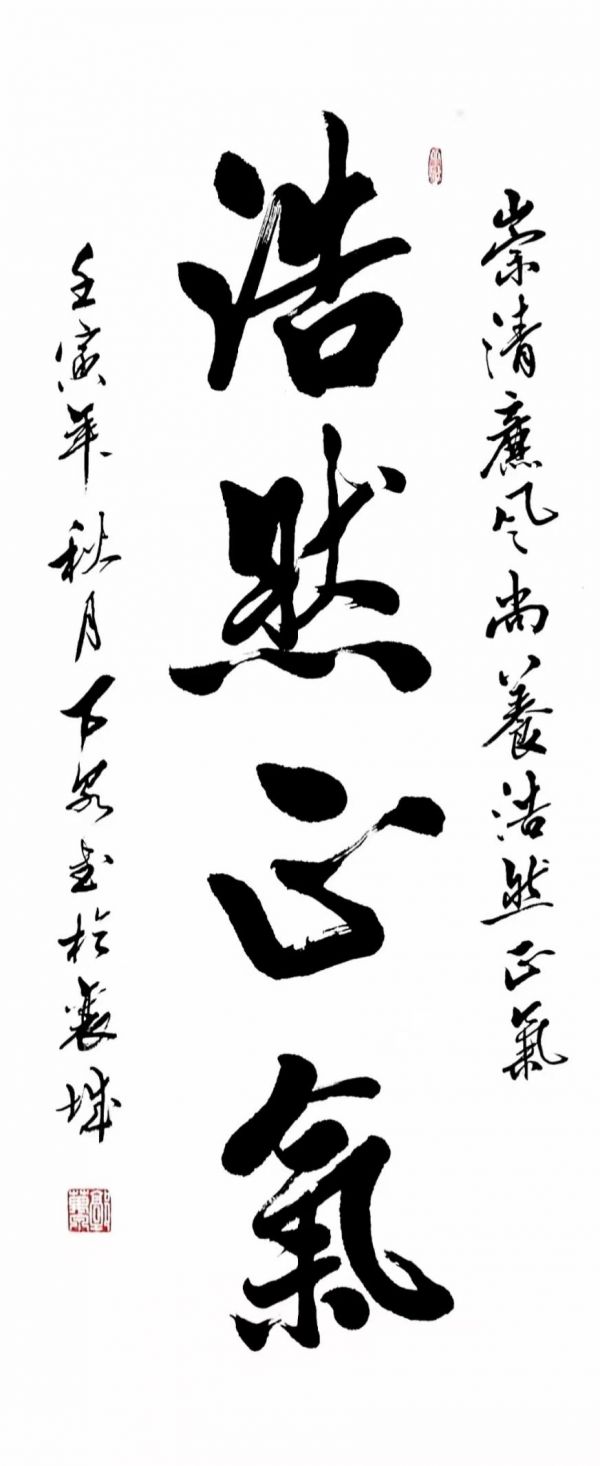 崇清廉風尚養浩然正氣
浩然正氣
壬寅年秋月万泉书於襄城